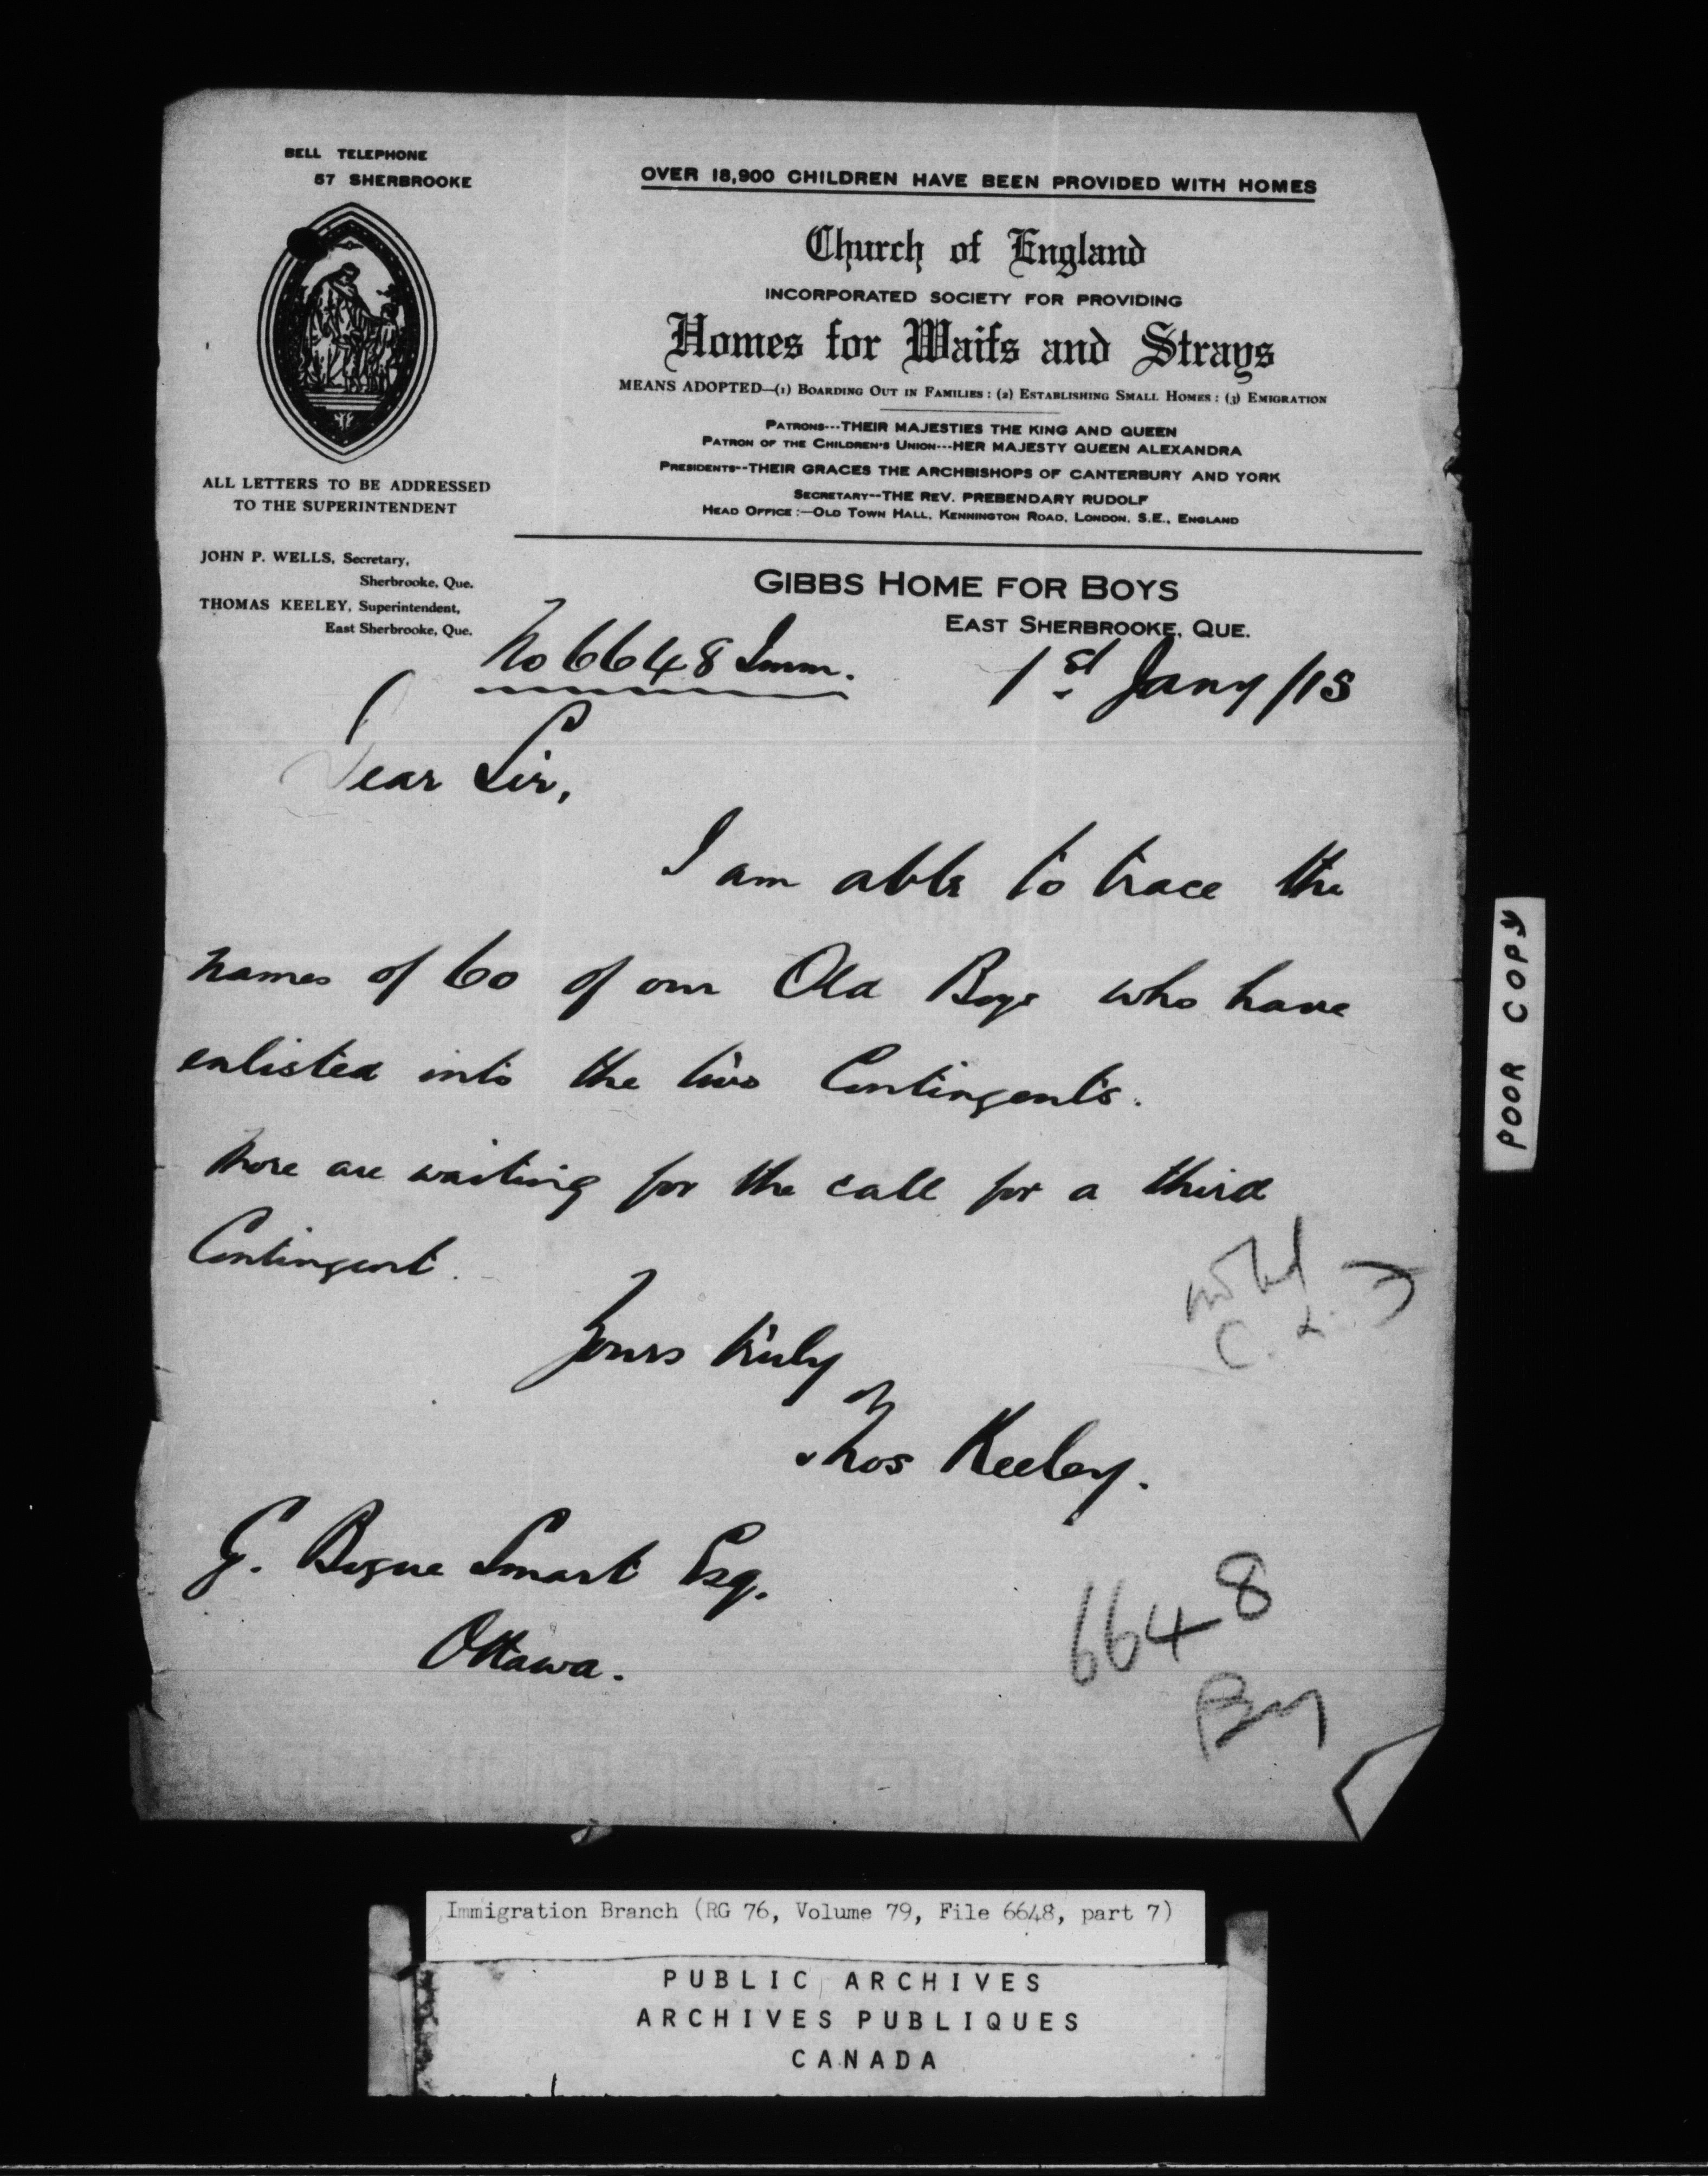 BELL TELEPHONE
57 SHERBROOKE
OVER 18,900 CHILDREN HAVE BEEN PROVIDED WITH HOMES
Church of England
INCORPORATED SOCIETY FOR PROVIDING
Homes for Waifs and Strays
MEANS ADOPTED—(1) BOARDING OUT IN FAMILIES: (2) ESTABLISHING SMALL HOMES: (3) EMIGRATION
PATRONS---THEIR MAJESTIES THE KING AND QUEEN
PATRON OF THE CHILDREN'S UNION---HER MAJESTY QUEEN ALEXANDRA
PRESIDENTS--THEIR GRACES THE ARCHBISHOPS OF CANTERBURY AND YORK
SECRETARY--THE REV. PREBENDARY RUDOLF
HEAD OFFICE:—OLD TOWN HALL, KENNINGTON ROAD, LONDON, S.E., ENGLAND
ALL LETTERS TO BE ADDRESSED
TO THE SUPERINTENDENT
JOHN P. WELLS, Secretary,
Sherbrooke, Que.
THOMAS KEELEY, Superintendent,
East Sherbrooke, Que.
GIBBS HOME FOR BOYS
EAST SHERBROOKE, QUE.
No 6648 Imm.
1st Jany /15
Dear Sir,
I am able to trace the
names of 60 of our Old Boys who have
enlisted into the two Contingents.
More are waiting for the call for a third
Contingent.
Yours truly
Thos Keeley.
G. Bogue Smart Esq.
Ottawa.
6648
POOR COPY
Immigration Branch (RG 76, Volume 79, File 6648, part 7)
PUBLIC ARCHIVES
ARCHIVES PUBLIQUES
CANADA